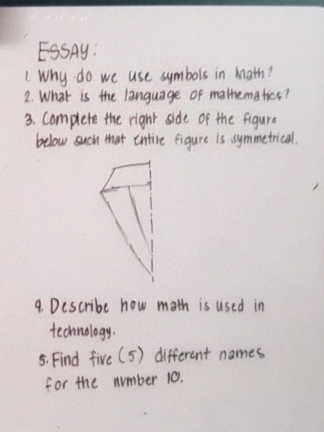 ESSAY:
1. Why do we use symbols in Math?
2. What is the language of mathematics?
3. Complete the right side of the figure
below such that entire figure is symmetrical.
4. Describe how math is used in
technology.
5. Find five (5) different names
for the number 10.